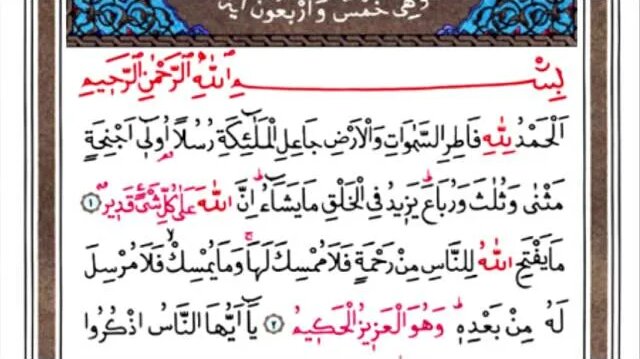 وَهِيَ خَمْسٌ وَاَرْبَعُونَ اٰيَةً
بِسْمِ اللّٰهِ الرَّحْمٰنِ الرَّحٖيمِ
اَلْحَمْدُ لِلّٰهِ فَاطِرِ السَّمٰوَاتِ وَالْاَرْضِ جَاعِلِ الْمَلٰٓئِكَةِ رُسُلًا اُولٖٓي اَجْنِحَةٍ
مَثْنٰى وَثُلٰثَ وَرُبَاعَ يَزٖيدُ فِي الْخَلْقِ مَا يَشَٓاءُ اِنَّ اللّٰهَ عَلٰى كُلِّ شَيْءٍ قَدٖيرٌ ١
مَا يَفْتَحِ اللّٰهُ لِلنَّاسِ مِنْ رَحْمَةٍ فَلَا مُمْسِكَ لَهَا وَمَا يُمْسِكْ فَلَا مُرْسِلَ
لَهُ مِنْ بَعْدِهٖ وَهُوَ الْعَزٖيزُ الْحَكٖيمُ ٢ يَٓا اَيُّهَا النَّاسُ اذْكُرُوا